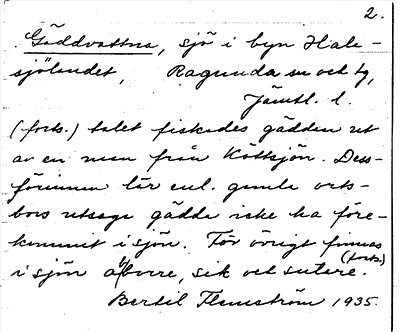 2.
Gäddvattna, sjö i byn Hale-
sjölandet, Ragunda sn och tg,
Jämtl. l.
(forts.) talet fiskades gädden ut
av en man från Köttsjön. Dess-
förinnan lär enl. gamla orts-
bors utsago gädda icke ha före-
kommit i sjön. För övrigt finnas
i sjön abborre, sik och sutare.
(forts.)
Bertil Flemström 1935.